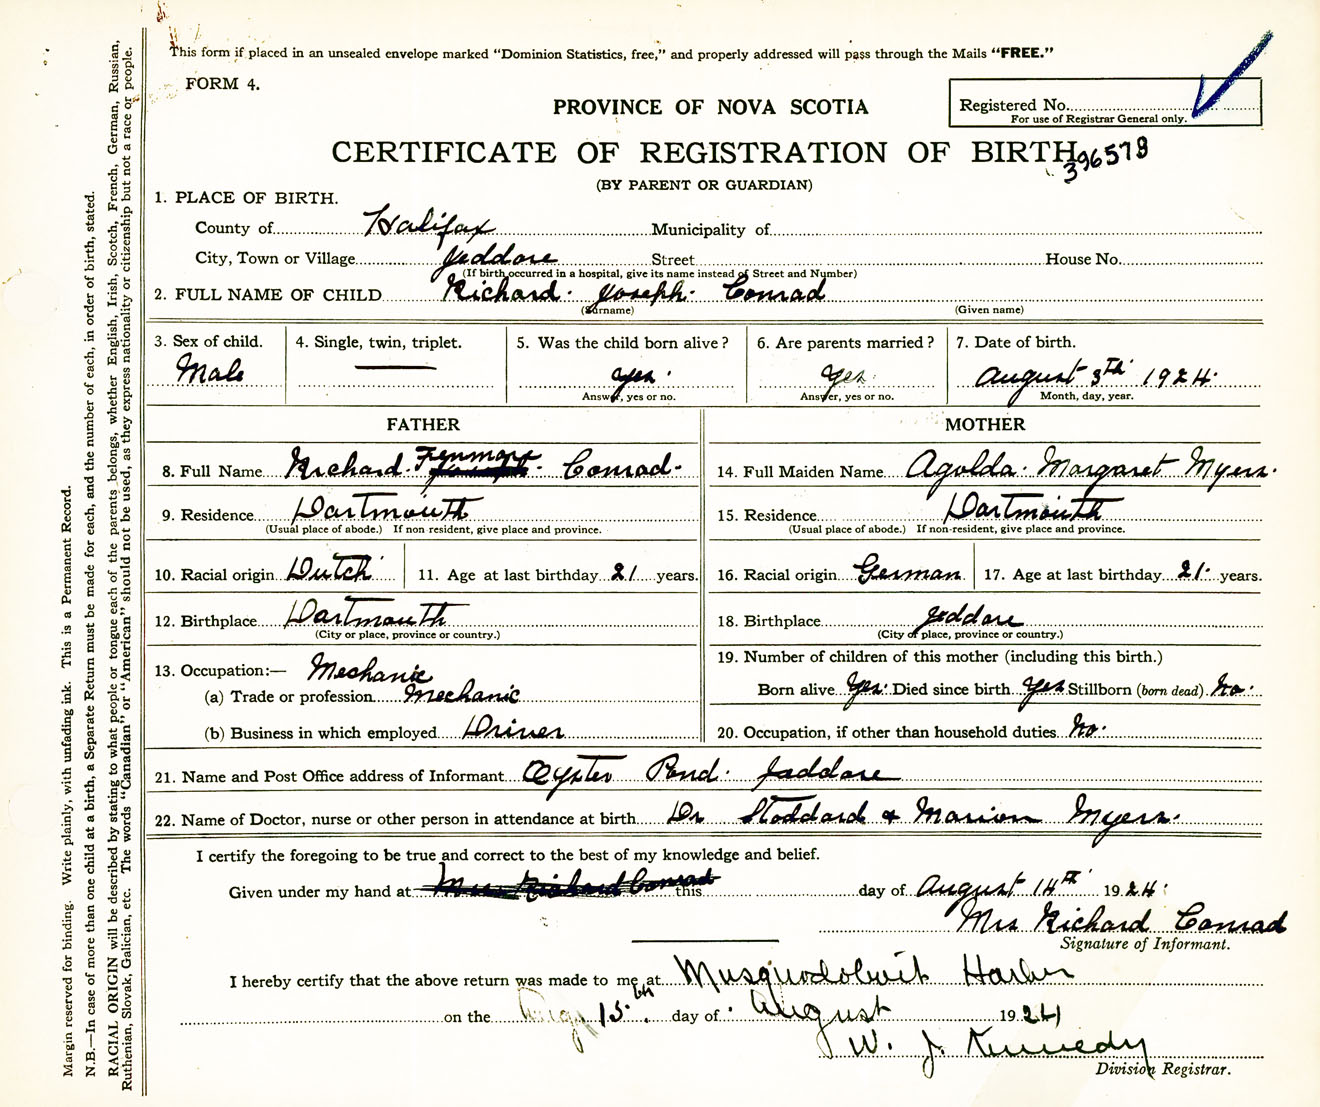 This form if placed in an unsealed envelope marked "Dominion Statistics, free," and properly addressed will pass through the Mails "FREE."
FORM 4.
PROVINCE OF NOVA SCOTIA
Registered No.
For use of Registrar General only.
CERTIFICATE OF REGISTRATION OF BIRTH
396578
(BY PARENT OR GUARDIAN)
1. PLACE OF BIRTH.
County of Halifax Municipality of
City, Town or Village Jeddore Street House No.
(If birth occurred in a hospital, give its name instead of Street and Number)
2. FULL NAME OF CHILD Richard Joseph Conrad
(Surname) (Given name)
3. Sex of child. 4. Single, twin, triplet. 5. Was the child born alive? 6. Are parents married? 7. Date of birth.
Male — yes. Yes. August 3th 1924.
Answer, yes or no. Answer, yes or no. Month, day, year.
FATHER
8. Full Name Richard Conrad
9. Residence Dartmouth
(Usual place of abode.) If non-resident, give place and province.
10. Racial origin Dutch 11. Age at last birthday 21 years.
12. Birthplace Dartmouth
(City or place, province or country.)
13. Occupation:— Mechanic
(a) Trade or profession Mechanic
(b) Business in which employed Driver
MOTHER
14. Full Maiden Name Agolda Margaret Myers.
15. Residence Dartmouth
(Usual place of abode.) If non-resident, give place and province.
16. Racial origin German 17. Age at last birthday 21. years.
18. Birthplace Jeddore
(City or place, province or country.)
19. Number of children of this mother (including this birth.)
Born alive Yes. Died since birth Yes Stillborn (born dead) No.
20. Occupation, if other than household duties No.
21. Name and Post Office address of Informant Oyster Pond. Jaddore
22. Name of Doctor, nurse or other person in attendance at birth Dr Stoddard & Marion Myers.
I certify the foregoing to be true and correct to the best of my knowledge and belief.
Given under my hand at Mrs Richard Conrad this day of August 14th 1924.
Mrs Richard Conrad
Signature of Informant.
I hereby certify that the above return was made to me at Musquodoboit Harbor
on the 15th day of August 1924
W. J. Kennedy
Division Registrar.
Margin reserved for binding. Write plainly, with unfading ink. This is a Permanent Record.
N.B.—In case of more than one child at a birth, a Separate Return must be made for each, and the number of each, in order of birth, stated.
RACIAL ORIGIN will be described by stating to what people or tongue each of the parents belongs, whether English, Irish, Scotch, French, German, Russian,
Ruthenian, Slovak, Galician, etc. The words "Canadian" or "American" should not be used, as they express nationality or citizenship but not a race or people.